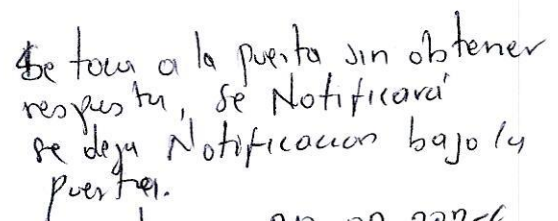 Se toca a la puerta sin obtener
respuesta, se Notificará
se deja Notificacion bajo la
puerta.